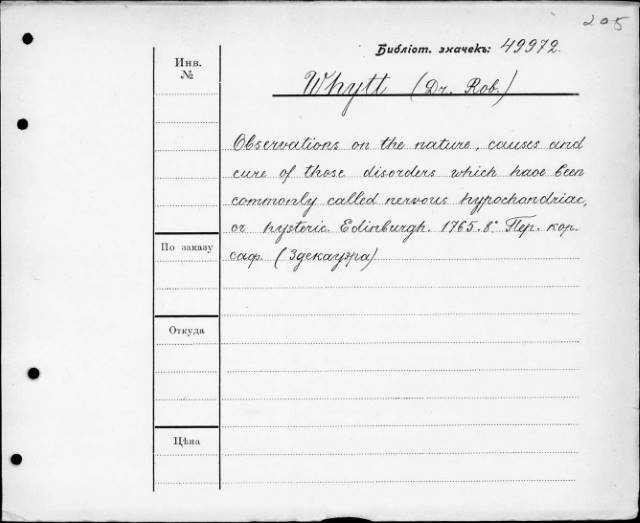 205
Библіот. значекъ: 49972.
Инв.
№
Whytt (Dr. Rob.)
Observations on the nature, causes and
cure of those disorders which have been
commonly called nervous hypochondriac,
or hysteric. Edinburgh. 1765. 8° Пер. кор.
саф. (Здекауэра)
По заказу
Откуда
Цѣна